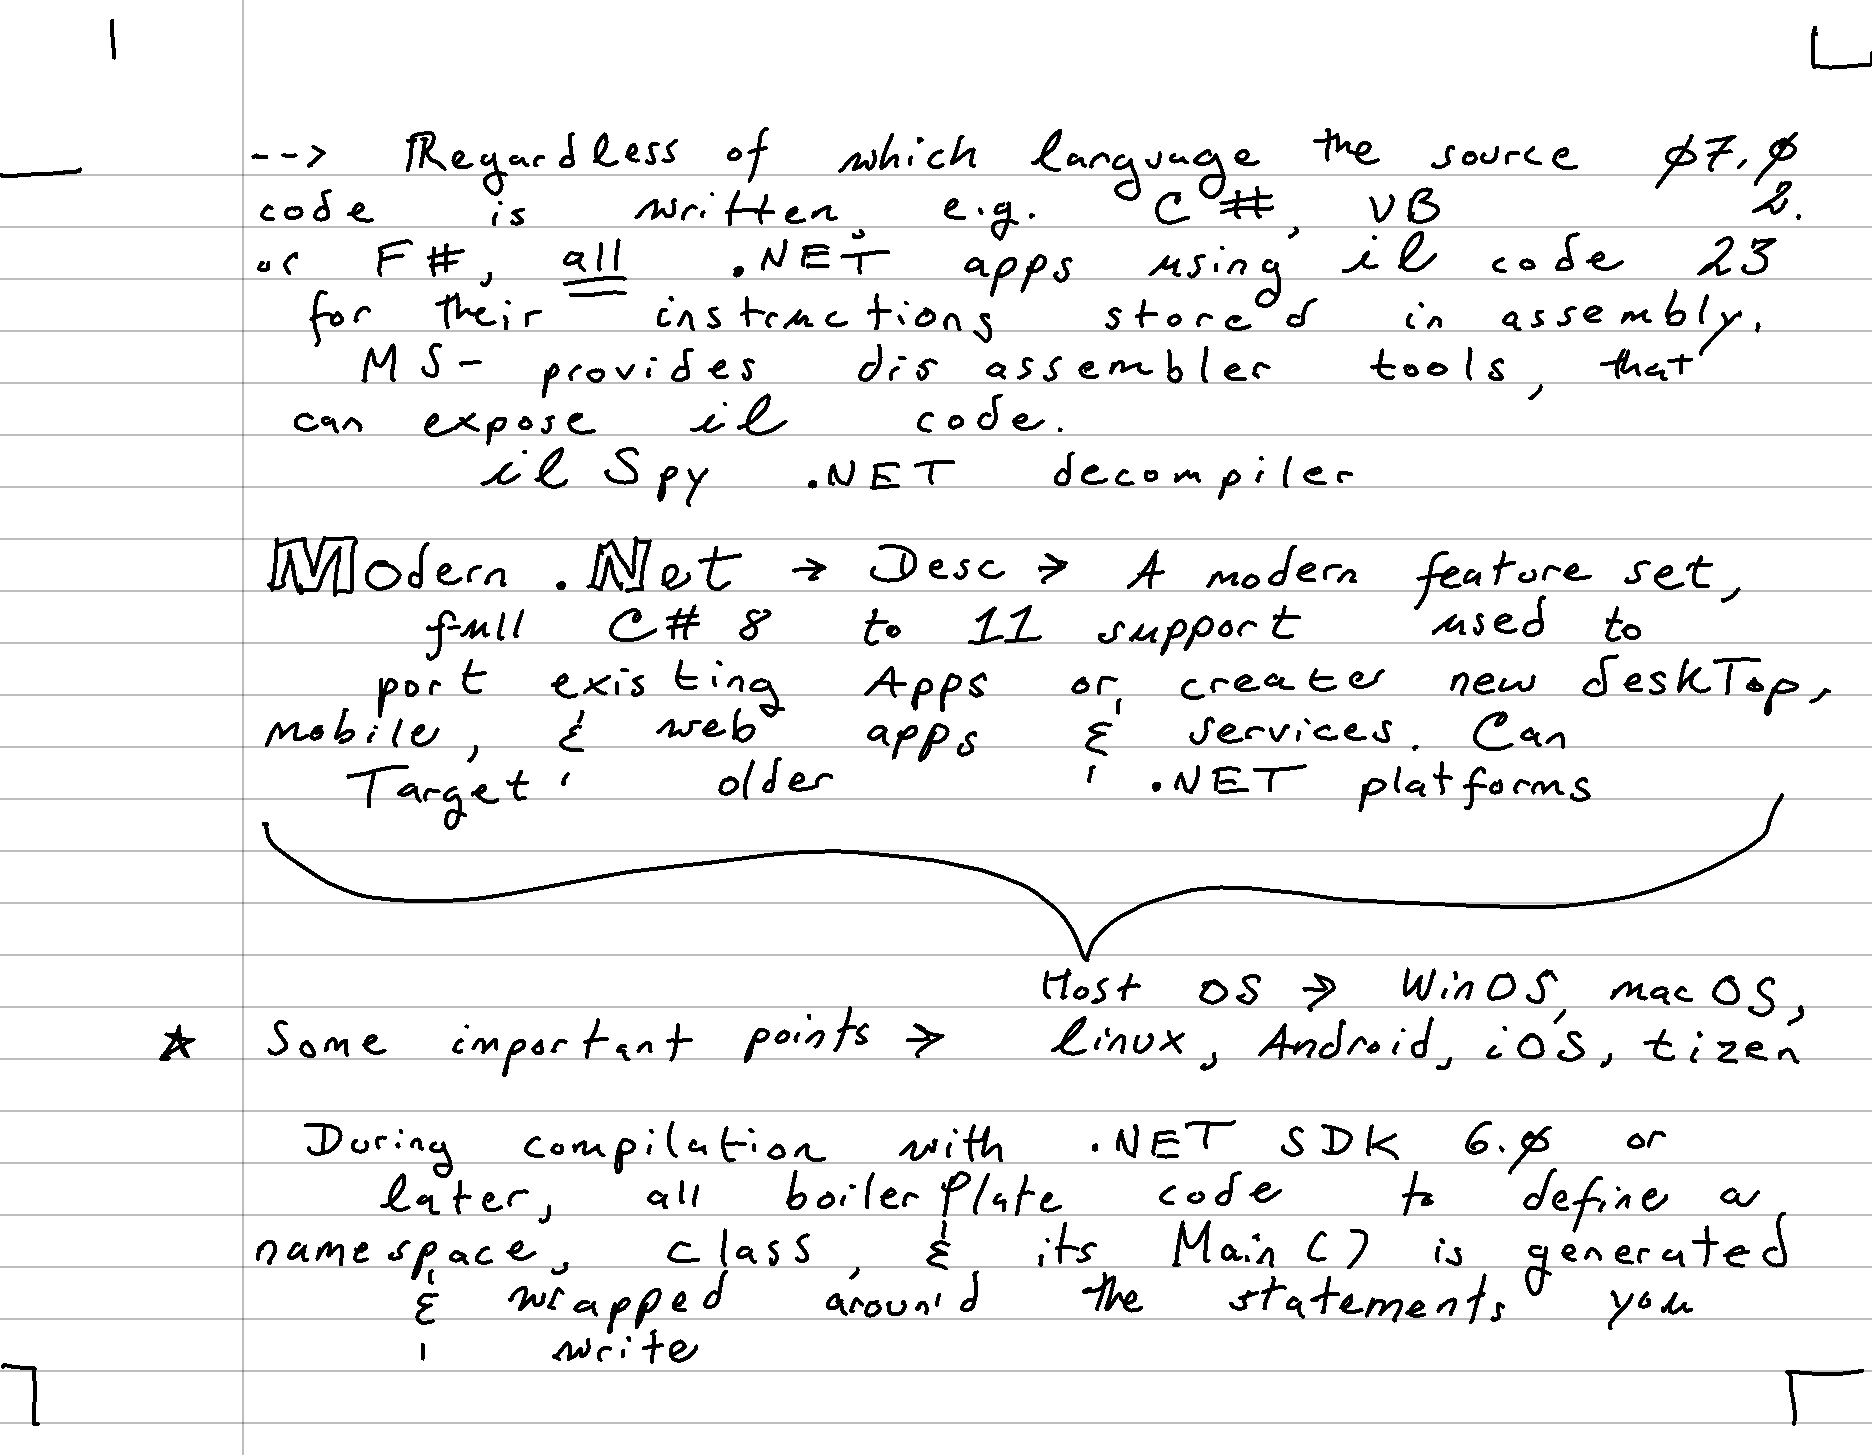 --> Regardless of which language the source ø7.ø
code is written, e.g. C#, VB 2.
or F#, all .NET apps using il code 23
for their instructions stored in assembly.
MS- provides dis assembler tools, that
can expose il code.
il Spy .NET decompiler
Modern .Net → Desc → A modern feature set,
full C# 8 to 11 support used to
port existing Apps or create new deskTop,
mobile, & web apps & services. Can
Target older .NET platforms
Host OS → WinOS, macOS,
★ Some important points → linux, Android, iOS, tizen
During compilation with .NET SDK 6.ø or
later, all boilerPlate code to define a
namespace, class, & its Main() is generated
& wrapped around the statements you
write